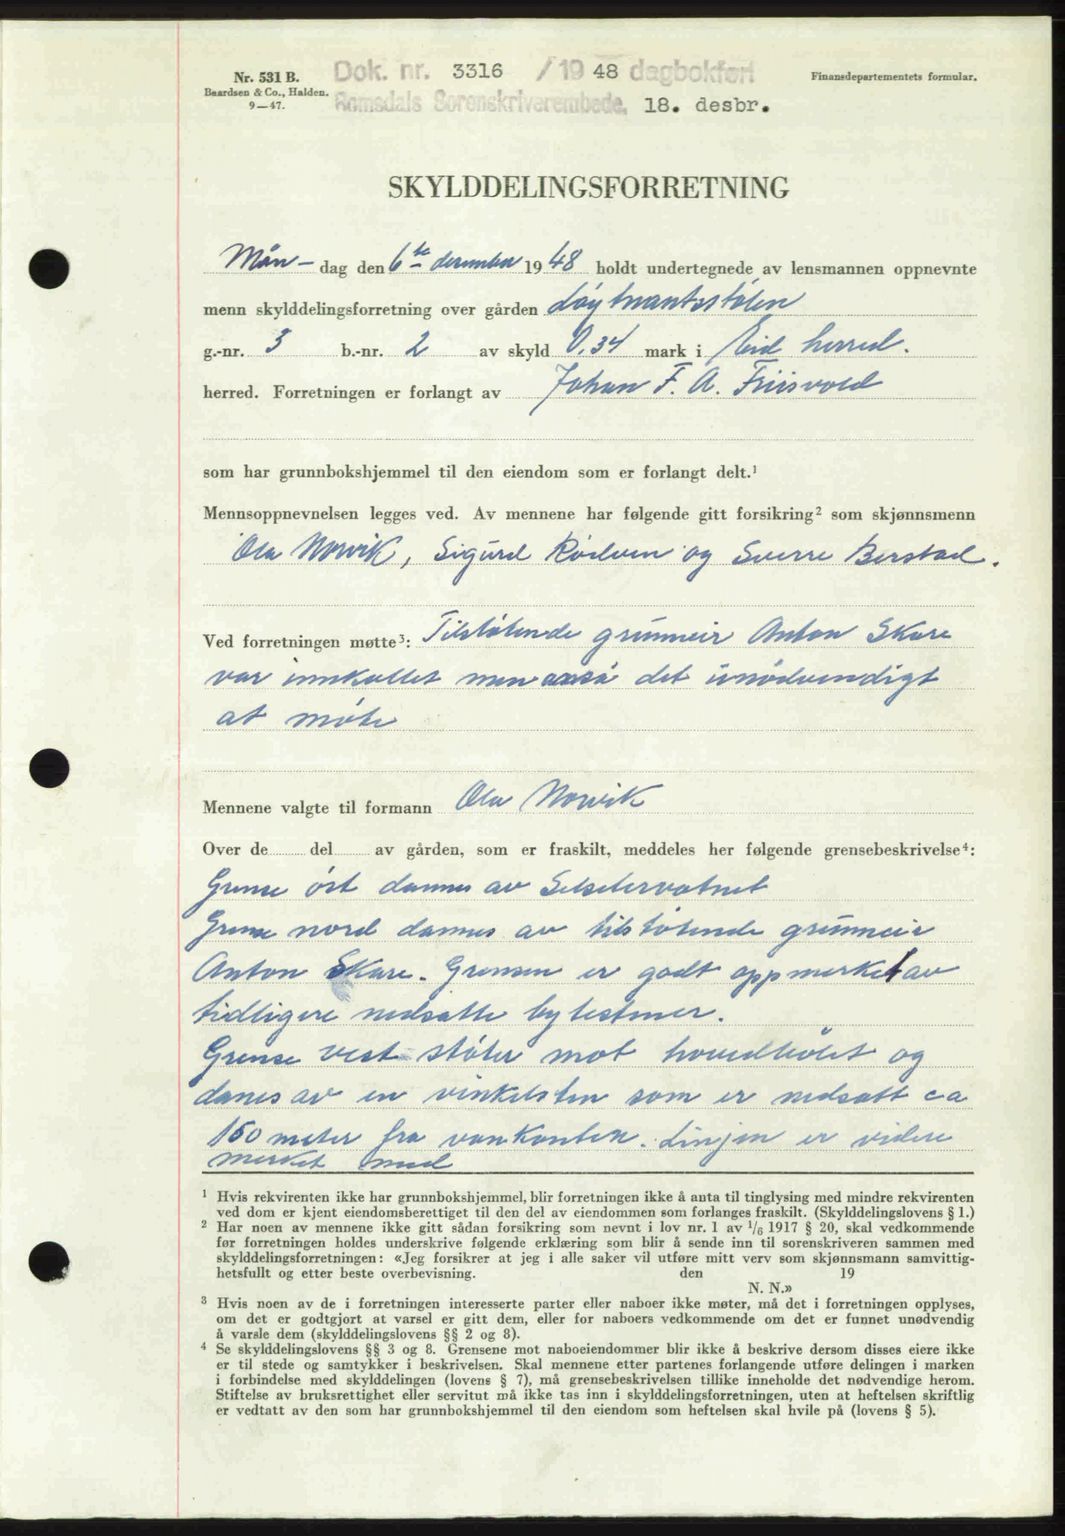 Nr. 531 B.
Baardsen & Co., Halden.
9—47.
Dok. nr. 3316 / 19 48 dagbokført
Romsdals Sorenskriverembede, 18. desbr.
Finansdepartementets formular.
SKYLDDELINGSFORRETNING
Mån- dag den 6te desember 19 48 holdt undertegnede av lensmannen oppnevnte
menn skylddelingsforretning over gården Løytnantsstølen
g.-nr. 3 b.-nr. 2 av skyld 0,34 mark i Eid herred.
herred. Forretningen er forlangt av Johan F. A. Friisvold
som har grunnbokshjemmel til den eiendom som er forlangt delt.¹
Mennsoppnevnelsen legges ved. Av mennene har følgende gitt forsikring² som skjønnsmenn
Ola Norvik, Sigurd Rødven og Sverre Berstad.
Ved forretningen møtte³: Tilstøtende grunneir Anton Skare
var innkallet men anså det unødvendigt
at møte
Mennene valgte til formann Ola Norvik
Over de del av gården, som er fraskilt, meddeles her følgende grensebeskrivelse⁴:
Grense øst dannes av Selsetervatnet
Grense nord dannes av tilstøtende grunneir
Anton Skare. Grensen er godt oppmerket av
tidligere nedsatte bytestener.
Grense vest støter mot hovedbølet og
danes av en vinkelsten som er nedsatt ca
150 meter fra vankanten. Linjen er videre
merket med
¹ Hvis rekvirenten ikke har grunnbokshjemmel, blir forretningen ikke å anta til tinglysing med mindre rekvirenten
ved dom er kjent eiendomsberettiget til den del av eiendommen som forlanges fraskilt. (Skylddelingslovens § 1.)
² Har noen av mennene ikke gitt sådan forsikring som nevnt i lov nr. 1 av 1/6 1917 § 20, skal vedkommende
før forretningen holdes underskrive følgende erklæring som blir å sende inn til sorenskriveren sammen med
skylddelingsforretningen: «Jeg forsikrer at jeg i alle saker vil utføre mitt verv som skjønnsmann samvittig-
hetsfullt og etter beste overbevisning. den 19
N. N.»
³ Hvis noen av de i forretningen interesserte parter eller naboer ikke møter, må det i forretningen opplyses,
om det er godtgjort at varsel er gitt dem, eller for naboers vedkommende om det er funnet unødvendig
å varsle dem (skylddelingslovens §§ 2 og 8).
⁴ Se skylddelingslovens §§ 3 og 8. Grensene mot naboeiendommer blir ikke å beskrive dersom disses eiere ikke
er til stede og samtykker i beskrivelsen. Skal mennene etter partenes forlangende utføre delingen i marken
i forbindelse med skylddelingen (lovens § 7), må grensebeskrivelsen tillike inneholde det nødvendige herom.
Stiftelse av bruksrettighet eller servitut må ikke tas inn i skylddelingsforretningen, uten at heftelsen skriftlig
er vedtatt av den som har grunnbokshjemmel til den eiendom som heftelsen skal hvile på (lovens § 5).